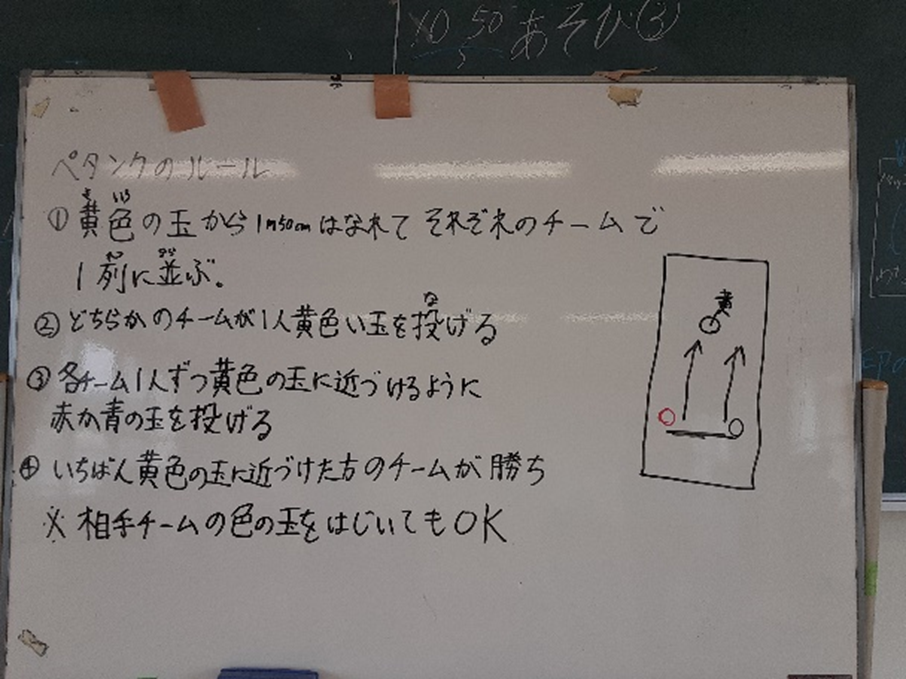 あそび③
ペタンクのルール
① 黄色の玉から1m50cmはなれて それぞれのチームで
1列に並ぶ。
② どちらかのチームが1人黄色い玉を投げる
③ 各チーム1人ずつ黄色の玉に近づけるように
赤か青の玉を投げる
④ いちばん黄色の玉に近づけた方のチームが勝ち
※ 相手チームの色の玉をはじいてもOK
黄